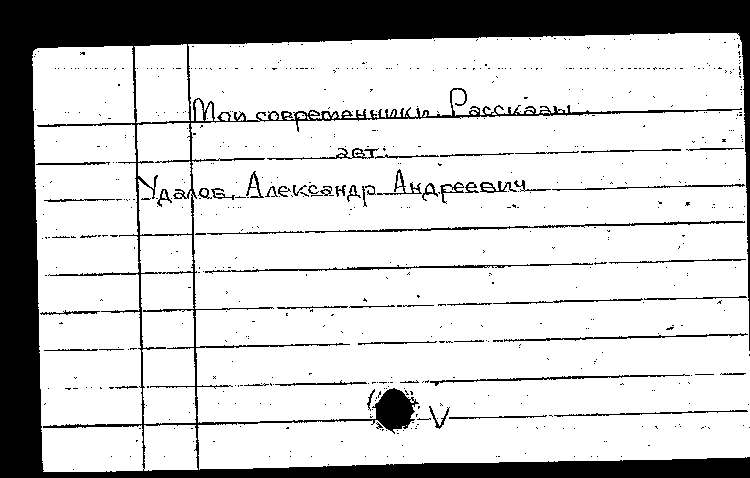 Мои современники. Рассказы.
авт:
Удалов, Александр Андреевич
V